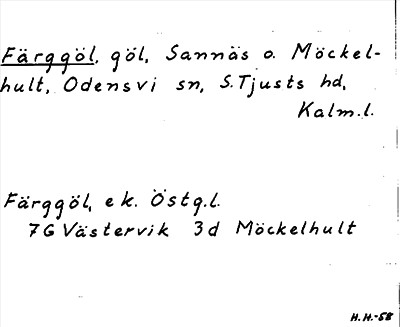 Färggöl, göl, Sannäs o. Möckel-
hult, Odensvi sn, S. Tjusts hd,
Kalm. l.
Färggöl, ek. Östg. l.
7G Västervik 3d Möckelhult
H.H.-58